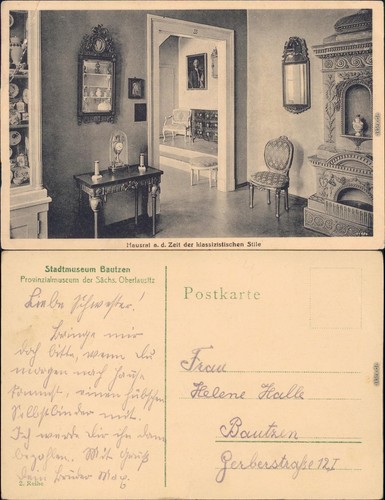 Hausrat a. d. Zeit der klassizistischen Stile
Stadtmuseum Bautzen
Provinzialmuseum der Sächs. Oberlausitz
Liebe Schwester!
Bringe mir
doch bitte, wenn du
morgen nach Hause
kommst, einen hübschen
Selbstbinder mit.
Ich werde dir ihn dann
bezahlen. Mit Gruß
Dein Bruder Max.
2. Reihe
Postkarte
Frau
Helene Halke
Bautzen
Gerberstraße 12 I